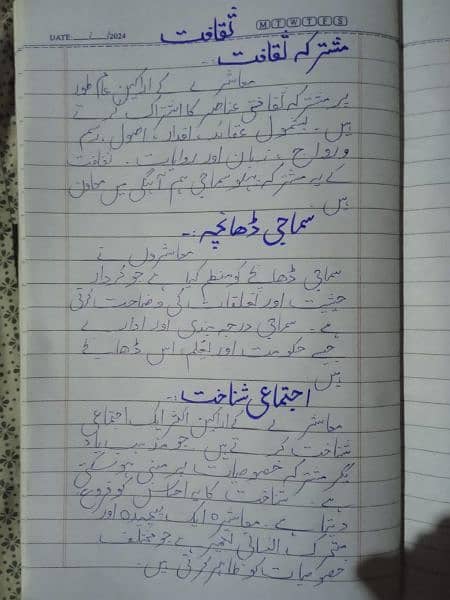 ثقافت
DATE: __/__/2024 M T W T F S
مشترکہ ثقافت :۔
معاشرے کے اراکین عام طور
پر مشترکہ ثقافتی عناصر کا اشتراک کرتے
ہیں۔ بشمول عقائد، اقدار، اصول، رسم
و رواج، زبان اور روایات۔ ثقافت
کے یہ مشترکہ پہلو سماجی ہم آہنگی میں معاون
ہیں۔
سماجی ڈھانچہ :۔
معاشروں نے
سماجی ڈھانچے کو منظم کیا ہے جو کردار
حیثیت اور تعلقات کی وضاحت کرتی
ہے۔ سماجی درجہ بندی اور ادارے
جیسے حکومت اور تعلیم اس ڈھانچے
ہیں
اجتماعی شناخت :۔
معاشرے کے اراکین اکثر ایک اجتماعی
شناخت کرتے ہیں جو مذہب یا
دیگر مشترکہ خصوصیات پر مبنی ہو سکتی
ہے۔ شناخت کا یہ احساس کو فروغ
دیتا ہے۔ معاشرہ ایک پیچیدہ اور
متحرک انسانی تعمیر ہے جو مختلف
خصوصیات کو ظاہر کرتی ہیں۔